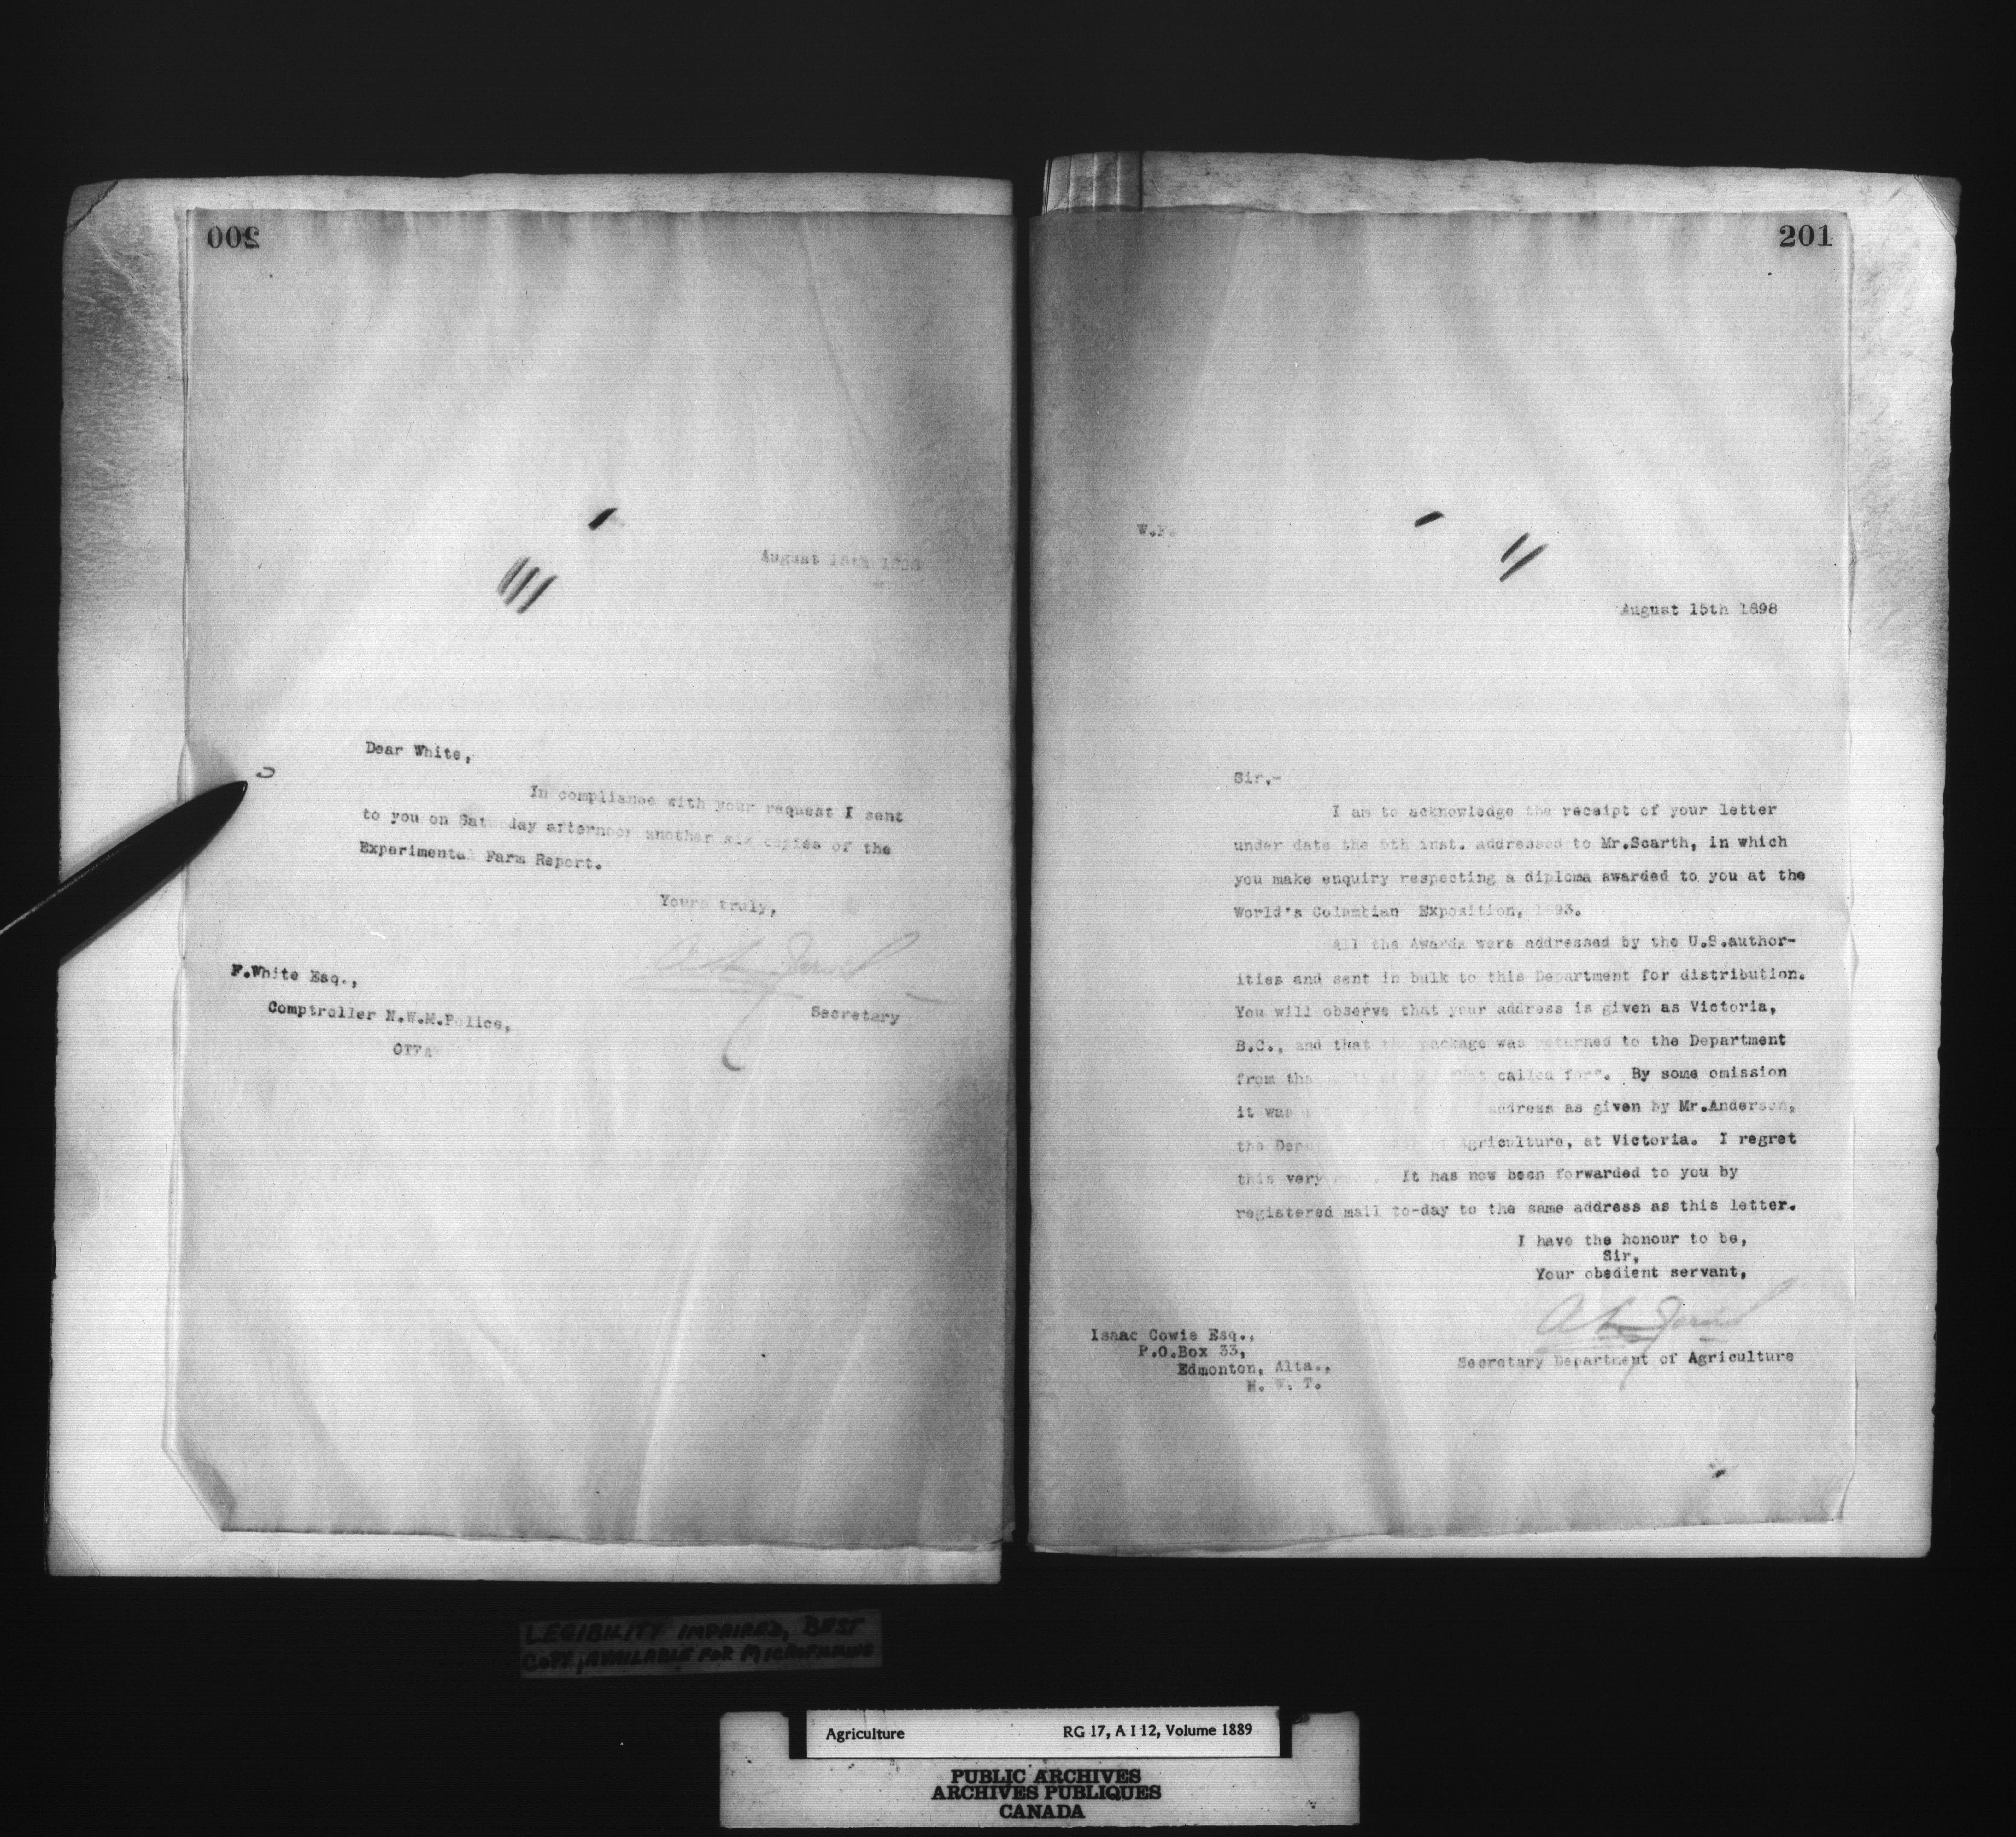 200
August 15th 1898
Dear White,
In compliance with your request I sent
to you on Saturday afternoon another six copies of the
Experimental Farm Report.
Yours truly,
A L Jarvis
Secretary
F.White Esq.,
Comptroller N.W.M.Police,
OTTAW
201
W.F.
August 15th 1898
Sir,-
I am to acknowledge the receipt of your letter
under date the 5th inst. addressed to Mr.Scarth, in which
you make enquiry respecting a diploma awarded to you at the
World's Columbian Exposition, 1893.
All the Awards were addressed by the U.S.author-
ities and sent in bulk to this Department for distribution.
You will observe that your address is given as Victoria,
B.C., and that the package was returned to the Department
from tha called for". By some omission
it was address as given by Mr.Anderson,
the Deputy of Agriculture, at Victoria. I regret
this very much. It has now been forwarded to you by
registered mail to-day to the same address as this letter.
I have the honour to be,
Sir,
Your obedient servant,
A L Jarvis
Secretary Department of Agriculture
Isaac Cowie Esq.,
P.O.Box 33,
Edmonton, Alta.,
N. W. T.
LEGIBILITY IMPAIRED, BEST
COPY AVAILABLE FOR MICROFILMING
Agriculture RG 17, A I 12, Volume 1889
PUBLIC ARCHIVES
ARCHIVES PUBLIQUES
CANADA